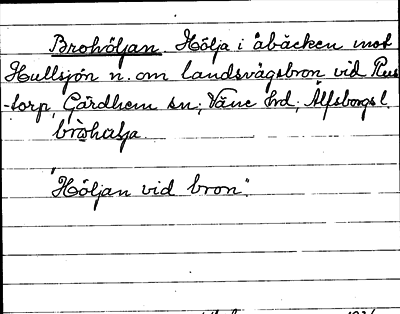 Brohöljan. Hölja i åbäcken mot
Hullsjön n. om landsvägsbron vid Rus
-torp, Gärdhem sn; Väne hrd; Älfsborgs l.
bròhalja
"Höljan vid bron".